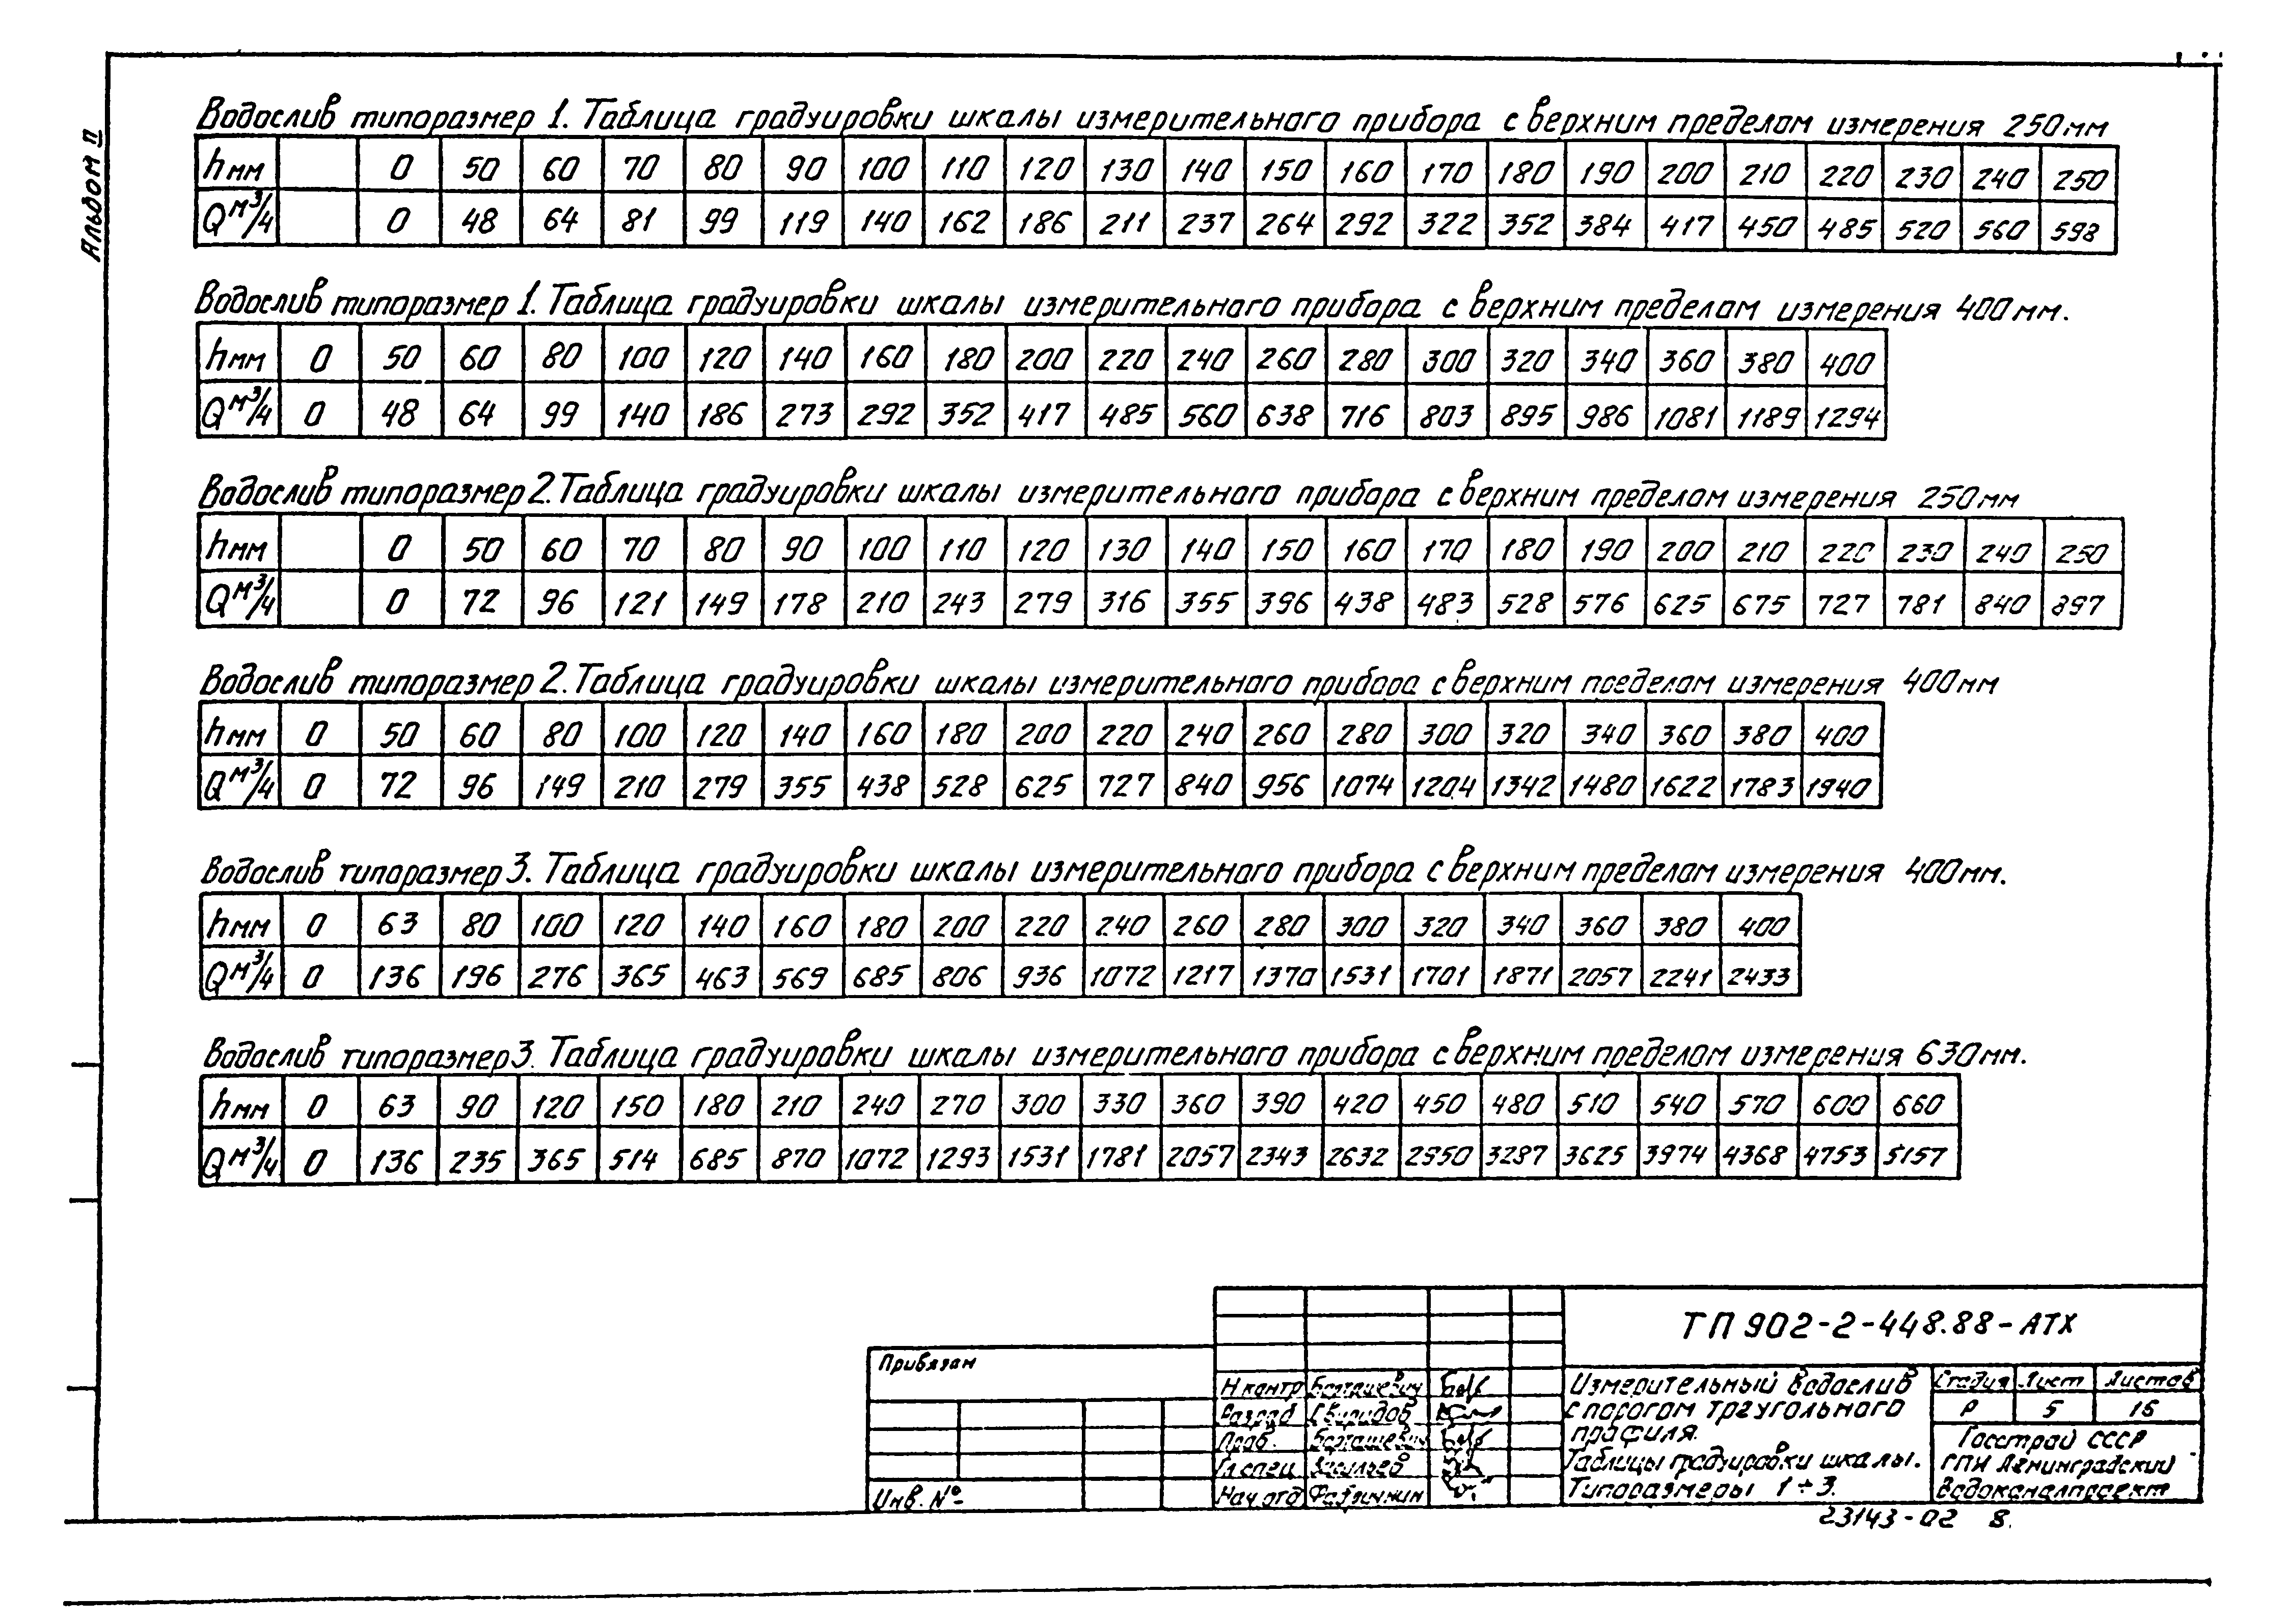 Альбом II
Водослив типоразмер 1. Таблица градуировки шкалы измерительного прибора с верхним пределом измерения 250 мм
h мм 0 50 60 70 80 90 100 110 120 130 140 150 160 170 180 190 200 210 220 230 240 250
Q м³/ч 0 48 64 81 99 119 140 162 186 211 237 264 292 322 352 384 417 450 485 520 560 598
Водослив типоразмер 1. Таблица градуировки шкалы измерительного прибора с верхним пределом измерения 400 мм.
h мм 0 50 60 80 100 120 140 160 180 200 220 240 260 280 300 320 340 360 380 400
Q м³/ч 0 48 64 99 140 186 273 292 352 417 485 560 638 716 803 895 986 1081 1189 1294
Водослив типоразмер 2. Таблица градуировки шкалы измерительного прибора с верхним пределом измерения 250 мм
h мм 0 50 60 70 80 90 100 110 120 130 140 150 160 170 180 190 200 210 220 230 240 250
Q м³/ч 0 72 96 121 149 178 210 243 279 316 355 396 438 483 528 576 625 675 727 781 840 897
Водослив типоразмер 2. Таблица градуировки шкалы измерительного прибора с верхним пределом измерения 400 мм
h мм 0 50 60 80 100 120 140 160 180 200 220 240 260 280 300 320 340 360 380 400
Q м³/ч 0 72 96 149 210 279 355 438 528 625 727 840 956 1074 1204 1342 1480 1622 1783 1940
Водослив типоразмер 3. Таблица градуировки шкалы измерительного прибора с верхним пределом измерения 400 мм.
h мм 0 63 80 100 120 140 160 180 200 220 240 260 280 300 320 340 360 380 400
Q м³/ч 0 136 196 276 365 463 569 685 806 936 1072 1217 1370 1531 1701 1871 2057 2241 2433
Водослив типоразмер 3. Таблица градуировки шкалы измерительного прибора с верхним пределом измерения 630 мм.
h мм 0 63 90 120 150 180 210 240 270 300 330 360 390 420 450 480 510 540 570 600 660
Q м³/ч 0 136 235 365 514 685 870 1072 1293 1531 1781 2057 2343 2632 2950 3287 3625 3974 4368 4753 5157
ТП 902-2-448.88-АТХ
Привязан
Инв. №
Н.контр
Разраб Свиридов
Пров.
Гл.спец Васильев
Нач.отд
Измерительный водослив
с порогом треугольного
профиля.
Таблицы градуировки шкалы.
Типоразмеры 1÷3.
Стадия Лист Листов
Р 5 16
Госстрой СССР
ГПИ Ленинградский
Водоканалпроект
23143-02 8.